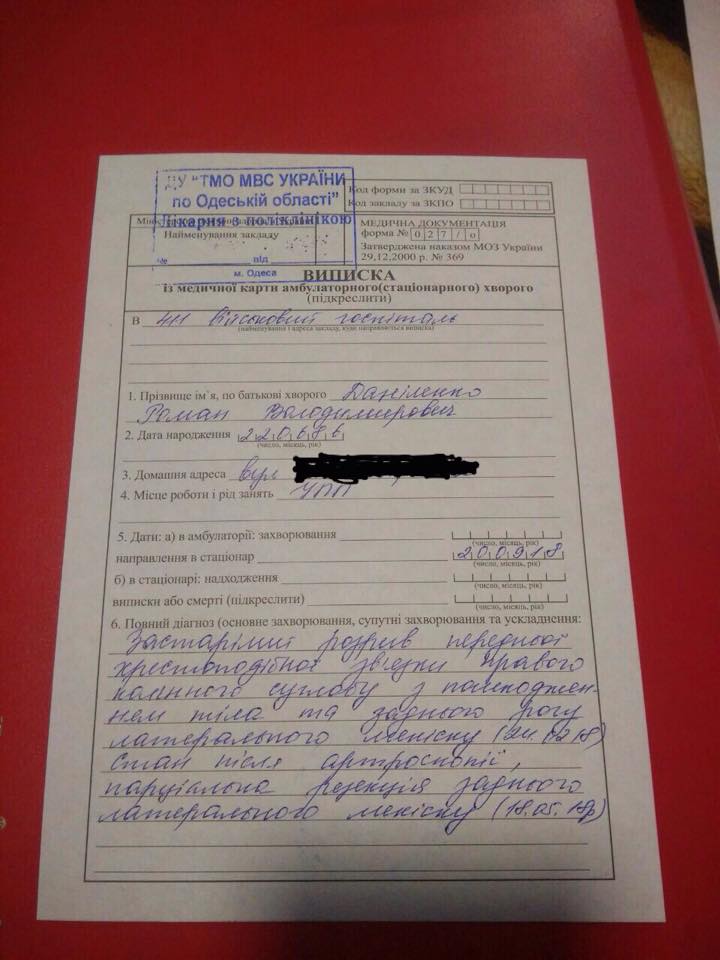 ДУ "ТМО МВС УКРАЇНИ
по Одеській області"
Лікарня з поліклінікою
№ від
м. Одеса
Код форми за ЗКУД
Код закладу за ЗКПО
Найменування закладу
МЕДИЧНА ДОКУМЕНТАЦІЯ
форма № 0 2 7 / о
Затверджена наказом МОЗ України
29,12,2000 р. № 369
ВИПИСКА
із медичної карти амбулаторного(стаціонарного) хворого
(підкреслити)
В 411 Військовий госпіталь
(найменування і адреса закладу, куди направляється виписка)
1. Прізвище ім`я, по батькові хворого Даніленко
Роман Володимирович
2. Дата народження 2 2 0 6 8 6
(число, місяць, рік)
3. Домашня адреса вул
4. Місце роботи і рід занять УПП
5. Дати: а) в амбулаторії: захворювання
(число, місяць, рік)
направлення в стаціонар 2 0 0 9 1 8
(число, місяць, рік)
б) в стаціонарі: надходження
(число, місяць, рік)
виписки або смерті (підкреслити)
(число, місяць, рік)
6. Повний діагноз (основне захворювання, супутні захворювання та ускладнення:
Застарілий розрив передньої
хрестоподібної зв'язки правого
колінного суглобу з пошкоджен-
нем тіла та заднього рогу
латерального меніску (24.02.18)
Стан після артроскопії,
парціальна резекція заднього
латерального меніску (18.05.18р)